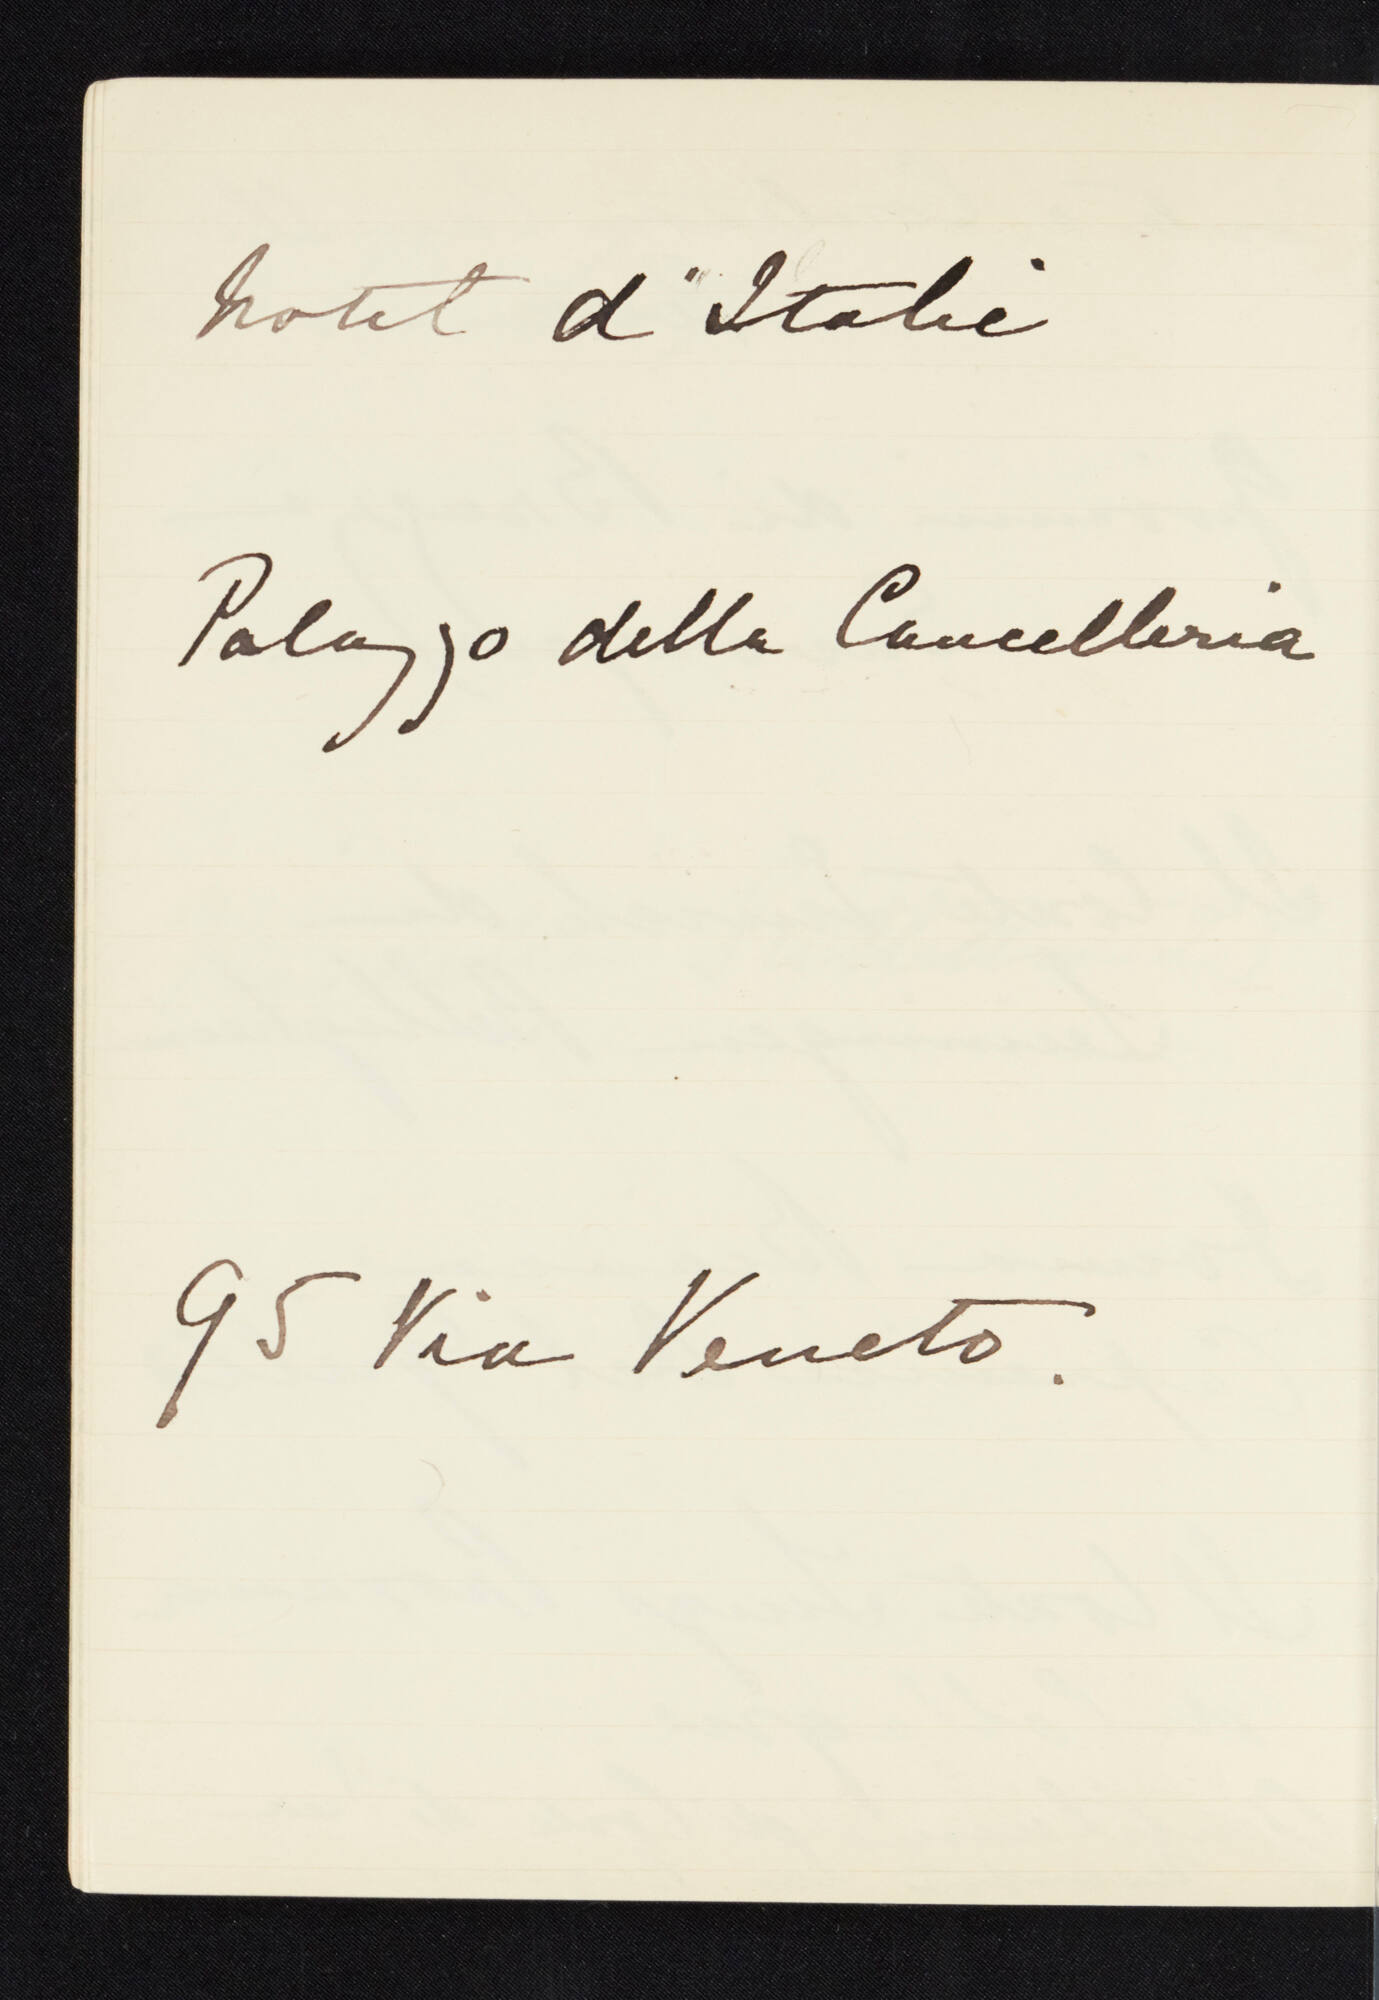 hotel d'Italie
Palazzo della Cancelleria
95 Via Veneto.